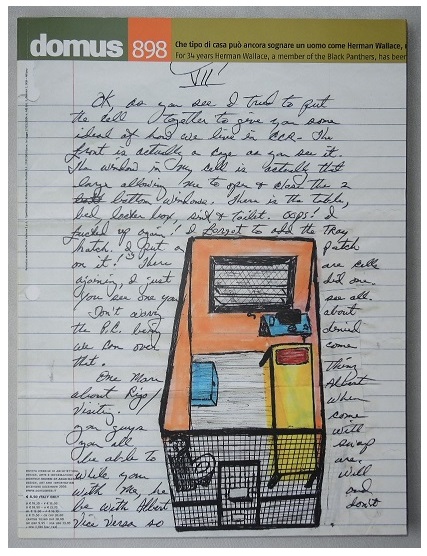 domus 898
Che tipo di casa può ancora sognare un uomo come Herman Wallace,
For 34 years Herman Wallace, a member of the Black Panthers, has been
VII
OK, as you see I tried to put
the cell together to give you some
ideal of how we live in CCR. The
front is actually a cage as you see it.
The window in my cell is actually that
large allowing me to open & close the 2
bottom windows. There is the table,
bed, locker box, sink & toilet. Oops! I
fucked up again! I forgot to add the Tray
hatch. I put a patch
on it! There are cells
againing, I just did one.
You see one you see all.
Don't worry about
the P.C. being denied
we can over come
that.
One more thing
about Rigo/ Albert
Visiting. When
you guys come
you all will
be able to swap
while you are.
with me, he will
be with Albert and
Vice Versa so don't